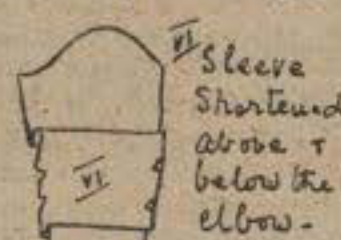 VI Sleeve
Shortened
above &
below the
elbow-
VI